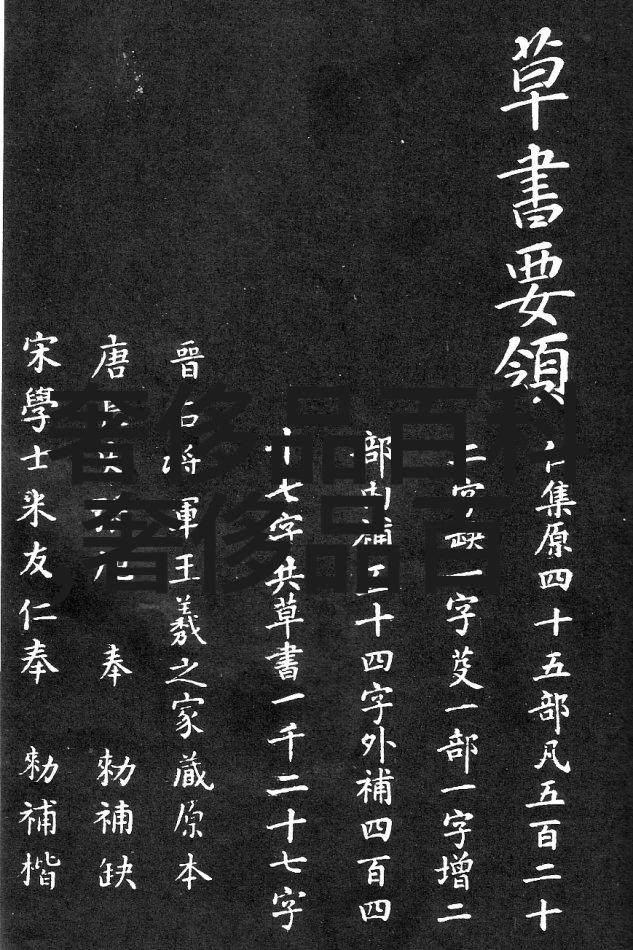 草書要領
集原四十五部凡五百二十
二字缺一字芟一部一字增二
部内補二十四字外補四百四
十七字共草書一千二十七字
晉右將軍王羲之家藏原本
唐 奉 勑補缺
宋學士米友仁奉 勑補楷
奢侈品百科
,奢侈品百